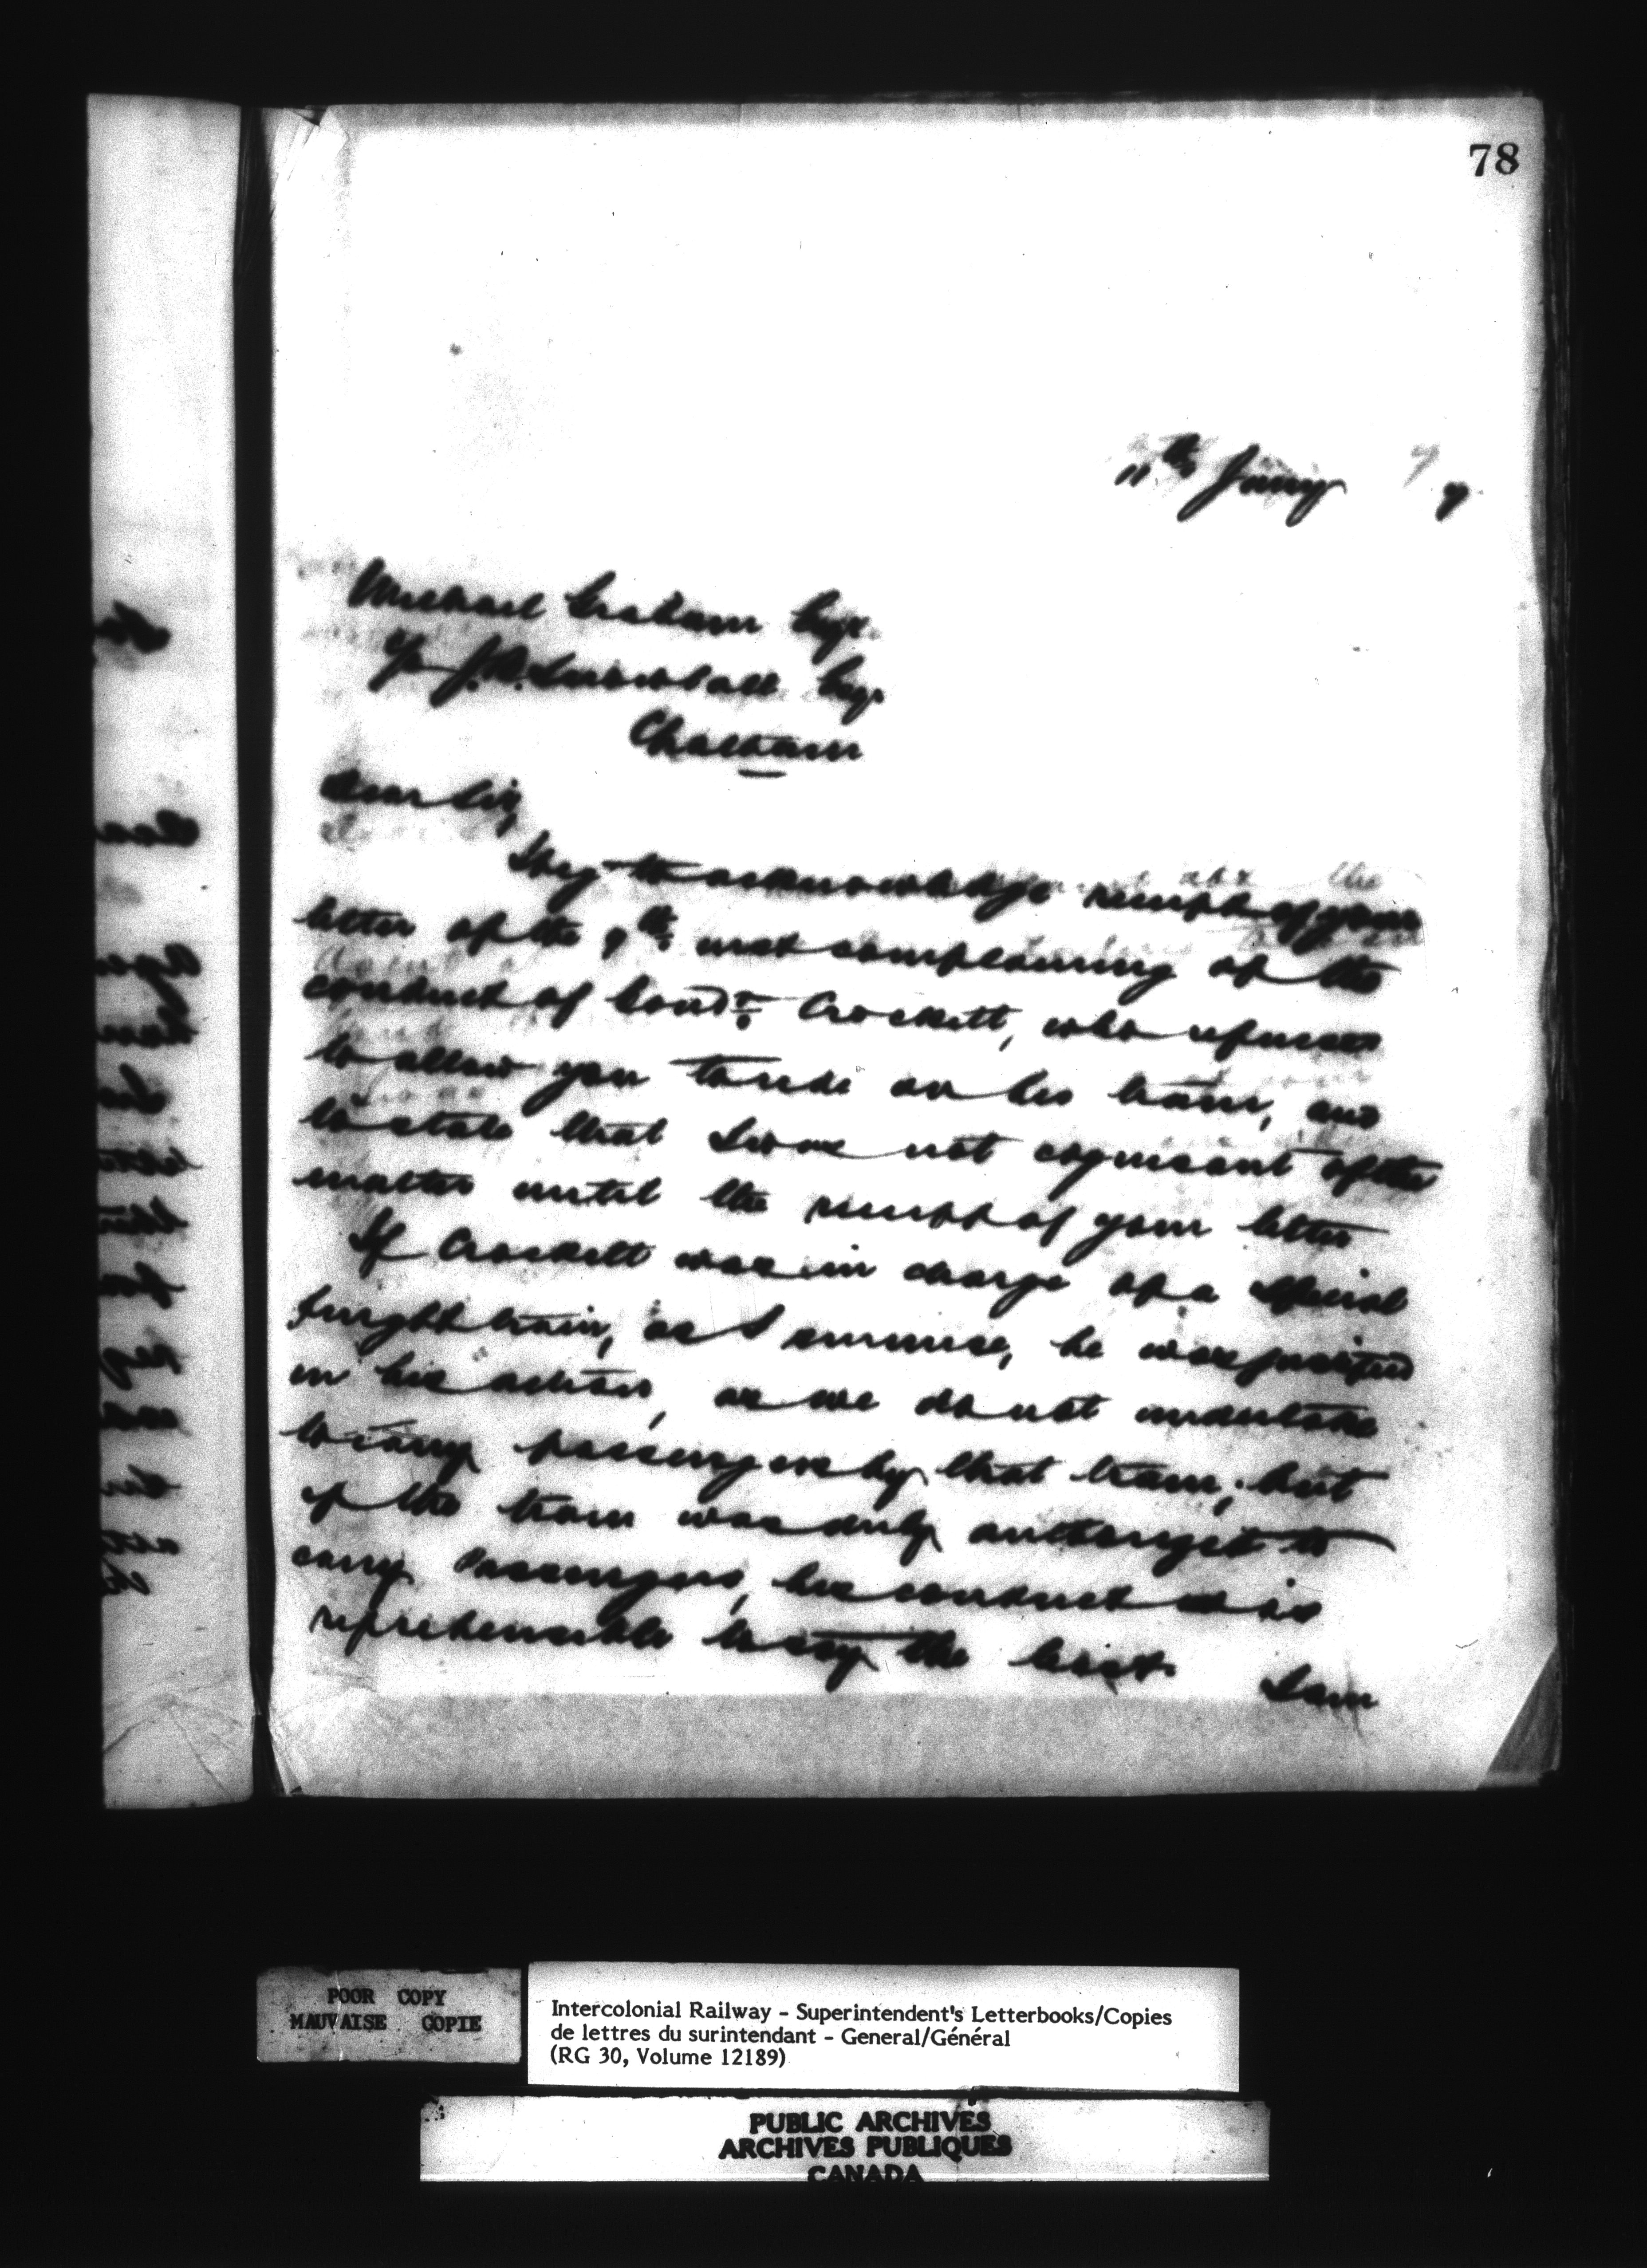 78
11th Jany 77
Michael Graham Esqr.
c/o J.B. Snowball Esq.
Chatham
Dear Sir,
I beg to acknowledge receipt of your
letter of the 9th inst complaining of the
conduct of Condr. Crockett, who refused
to allow you to ride on his train, and
to state that I was not cognisant of the
matter until the receipt of your letter
If Crockett was in charge of a special
freight train, as I surmise, he was justified
in his action, as we do not undertake
to carry passengers by that train; but
if the train was duly authorized to
carry Passengers, his conduct was
reprehensible to say the least. I am
POOR COPY
MAUVAISE COPIE
Intercolonial Railway - Superintendent's Letterbooks/Copies
de lettres du surintendant - General/Général
(RG 30, Volume 12189)
PUBLIC ARCHIVES
ARCHIVES PUBLIQUES
CANADA